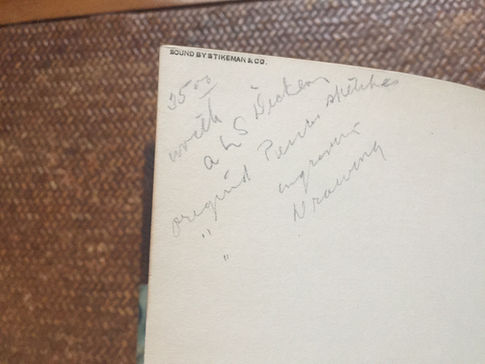 BOUND BY STIKEMAN & CO.
35 00
with
a L S Dickens
original Pencil sketches
" engraver
" Drawing